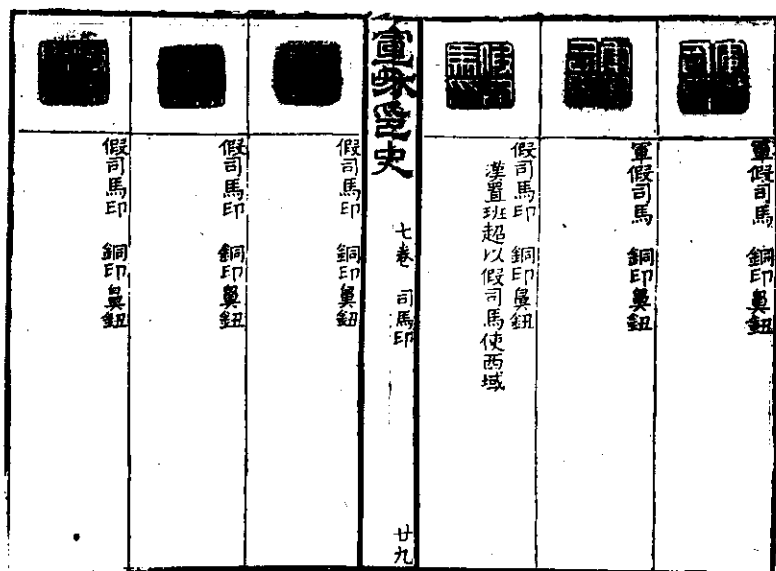 軍假司馬 銅印鼻鈕
軍假司馬 銅印鼻鈕
假司馬印 銅印鼻鈕
漢置班超以假司馬使西域
宣和印史 七卷 司馬印 廿九
假司馬印 銅印鼻鈕
假司馬印 銅印鼻鈕
假司馬印 銅印鼻鈕